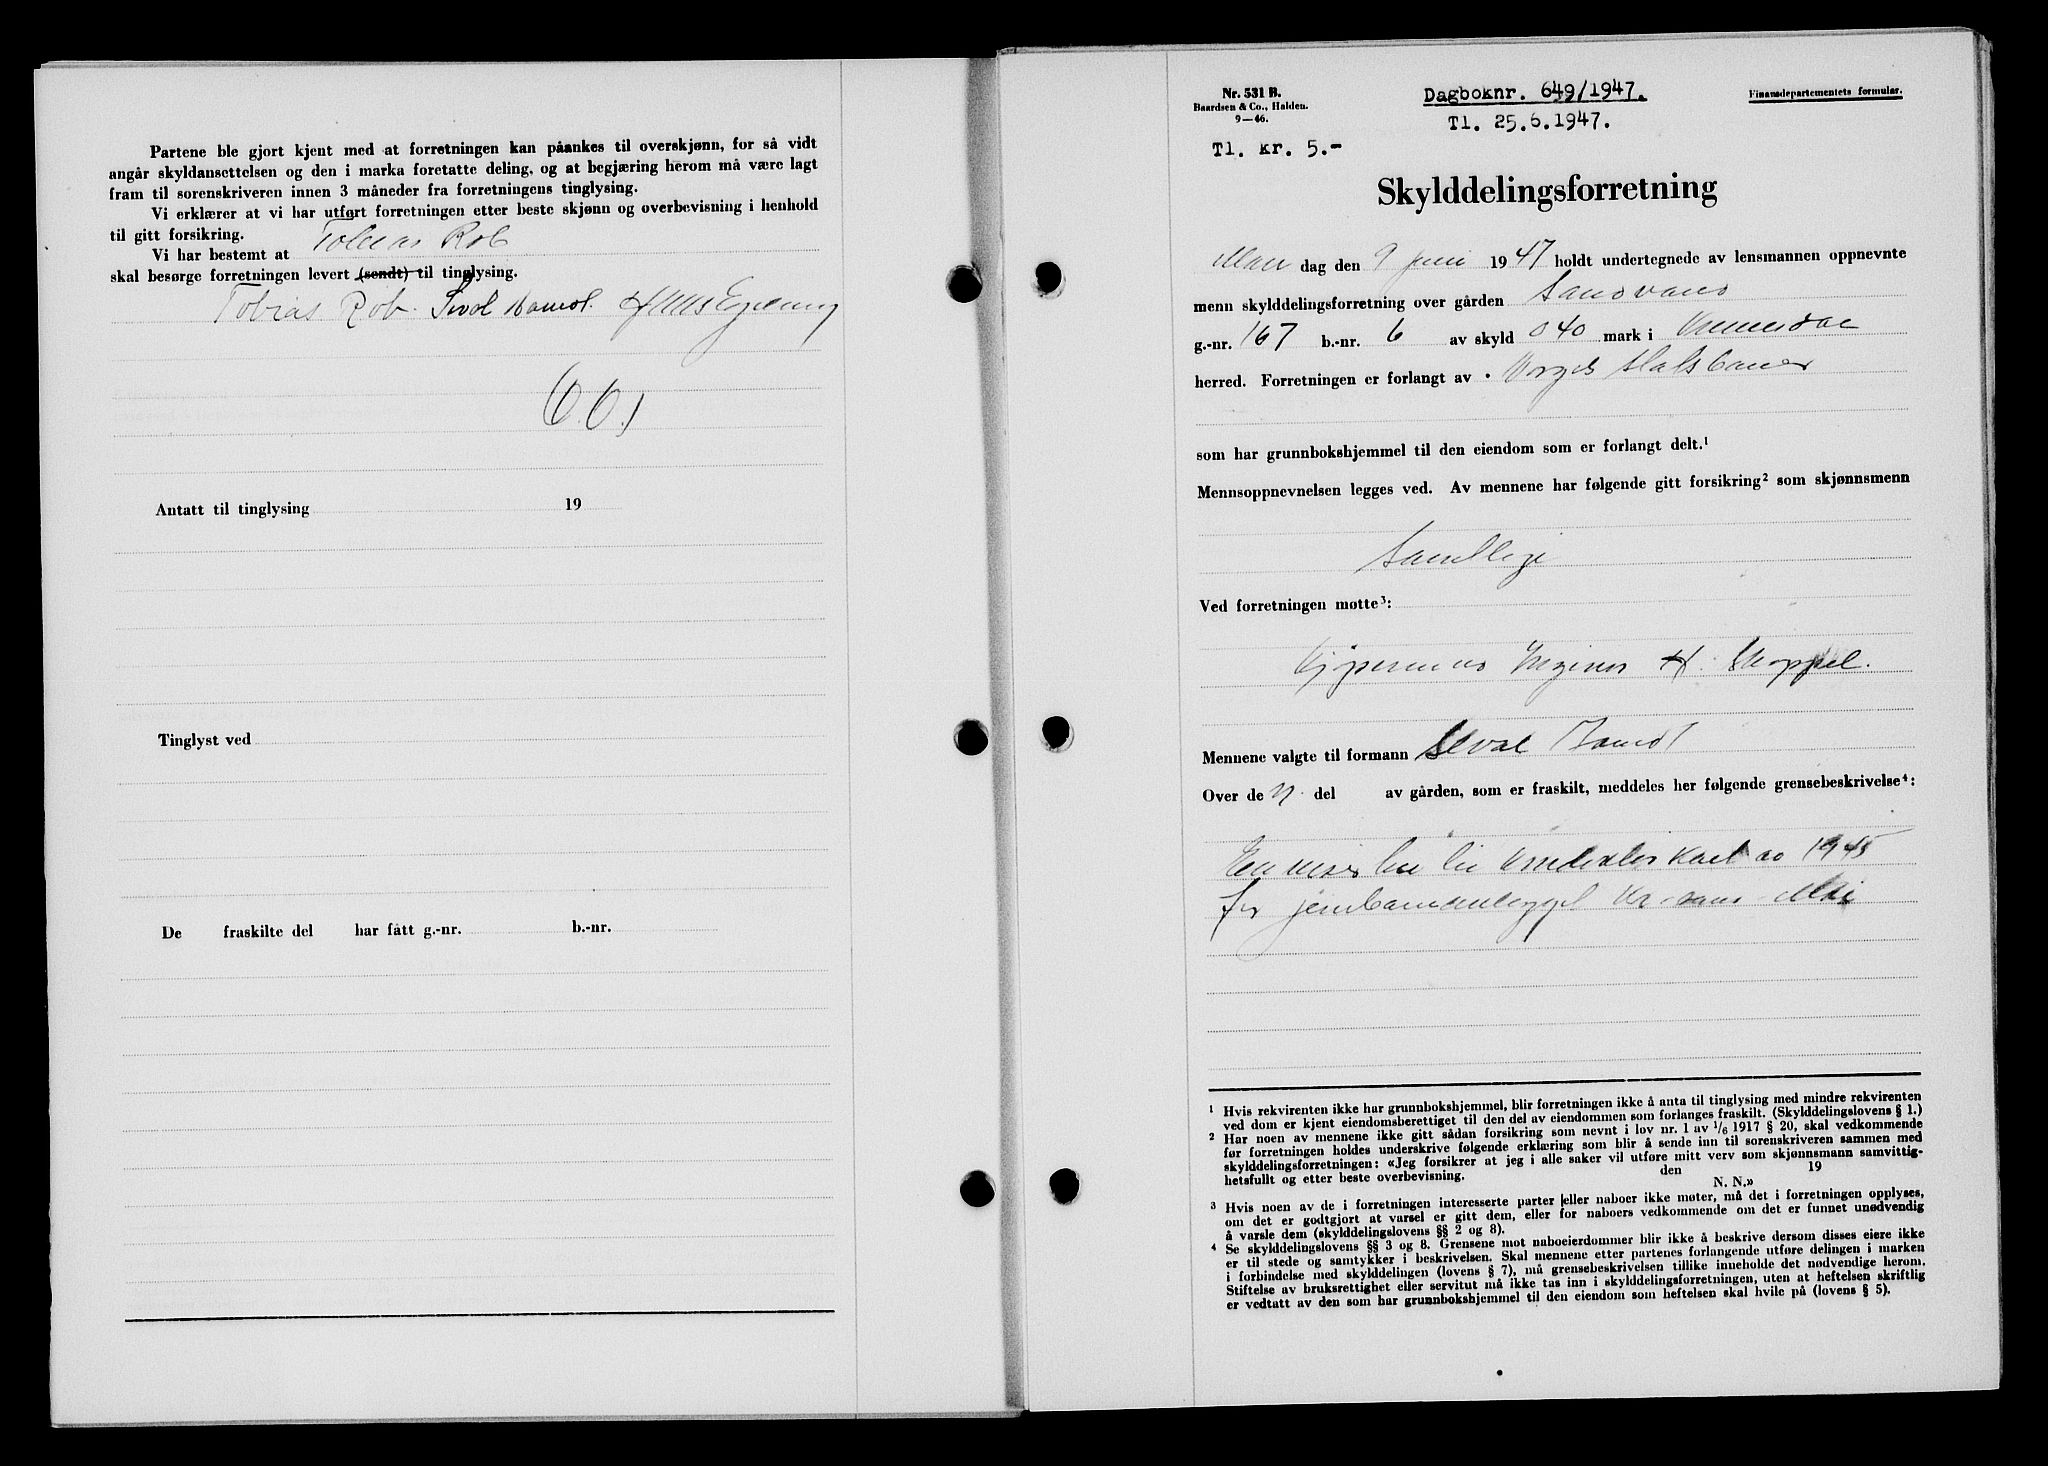 Partene ble gjort kjent med at forretningen kan påankes til overskjønn, for så vidt
angår skyldansettelsen og den i marka foretatte deling, og at begjæring herom må være lagt
fram til sorenskriveren innen 3 måneder fra forretningens tinglysing.
Vi erklærer at vi har utført forretningen etter beste skjønn og overbevisning i henhold
til gitt forsikring.
Vi har bestemt at Tobias Rob
skal besørge forretningen levert (sendt) til tinglysing.
Tobias Rob. Hans
Antatt til tinglysing 19
Tinglyst ved
De fraskilte del har fått g.-nr. b.-nr.
Nr. 531 B.
Baardsen & Co., Halden.
9—46.
Dagboknr. 649/1947.
Tl. 25.6.1947.
Finansdepartementets formular.
Tl. kr. 5.-
Skylddelingsforretning
dag den 9 juni 1947 holdt undertegnede av lensmannen oppnevnte
menn skylddelingsforretning over gården
g.-nr. 167 b.-nr. 6 av skyld 040 mark i
herred. Forretningen er forlangt av
som har grunnbokshjemmel til den eiendom som er forlangt delt.¹
Mennsoppnevnelsen legges ved. Av mennene har følgende gitt forsikring² som skjønnsmenn
Samtlige
Ved forretningen møtte³:
H.
Mennene valgte til formann
Over de n del av gården, som er fraskilt, meddeles her følgende grensebeskrivelse⁴:
1945
for
¹ Hvis rekvirenten ikke har grunnbokshjemmel, blir forretningen ikke å anta til tinglysing med mindre rekvirenten
ved dom er kjent eiendomsberettiget til den del av eiendommen som forlanges fraskilt. (Skylddelingslovens § 1.)
² Har noen av mennene ikke gitt sådan forsikring som nevnt i lov nr. 1 av 1/6 1917 § 20, skal vedkommende
før forretningen holdes underskrive følgende erklæring som blir å sende inn til sorenskriveren sammen med
skylddelingsforretningen: «Jeg forsikrer at jeg i alle saker vil utføre mitt verv som skjønnsmann samvittig-
hetsfullt og etter beste overbevisning.
den 19
N. N.»
³ Hvis noen av de i forretningen interesserte parter eller naboer ikke møter, må det i forretningen opplyses,
om det er godtgjort at varsel er gitt dem, eller for naboers vedkommende om det er funnet unødvendig
å varsle dem (skylddelingslovens §§ 2 og 8).
⁴ Se skylddelingslovens §§ 3 og 8. Grensene mot naboeierdommer blir ikke å beskrive dersom disses eiere ikke
er til stede og samtykker i beskrivelsen. Skal mennene etter partenes forlangende utføre delingen i marken
i forbindelse med skylddelingen (lovens § 7), må grensebeskrivelsen tillike inneholde det nødvendige herom.
Stiftelse av bruksrettighet eller servitut må ikke tas inn i skylddelingsforretningen, uten at heftelsen skriftlig
er vedtatt av den som har grunnbokshjemmel til den eiendom som heftelsen skal hvile på (lovens § 5).